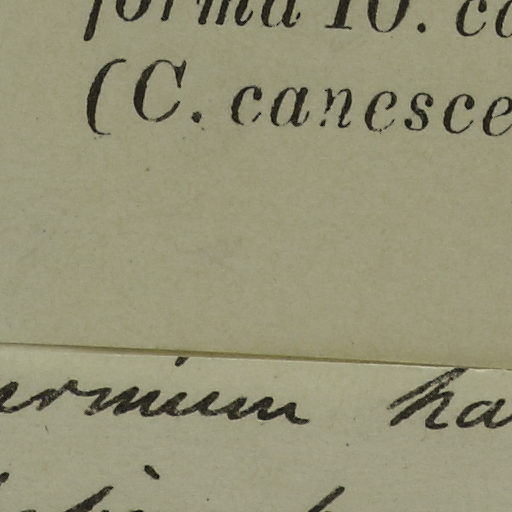 forma 10. co
(C. canesce
urmium ha